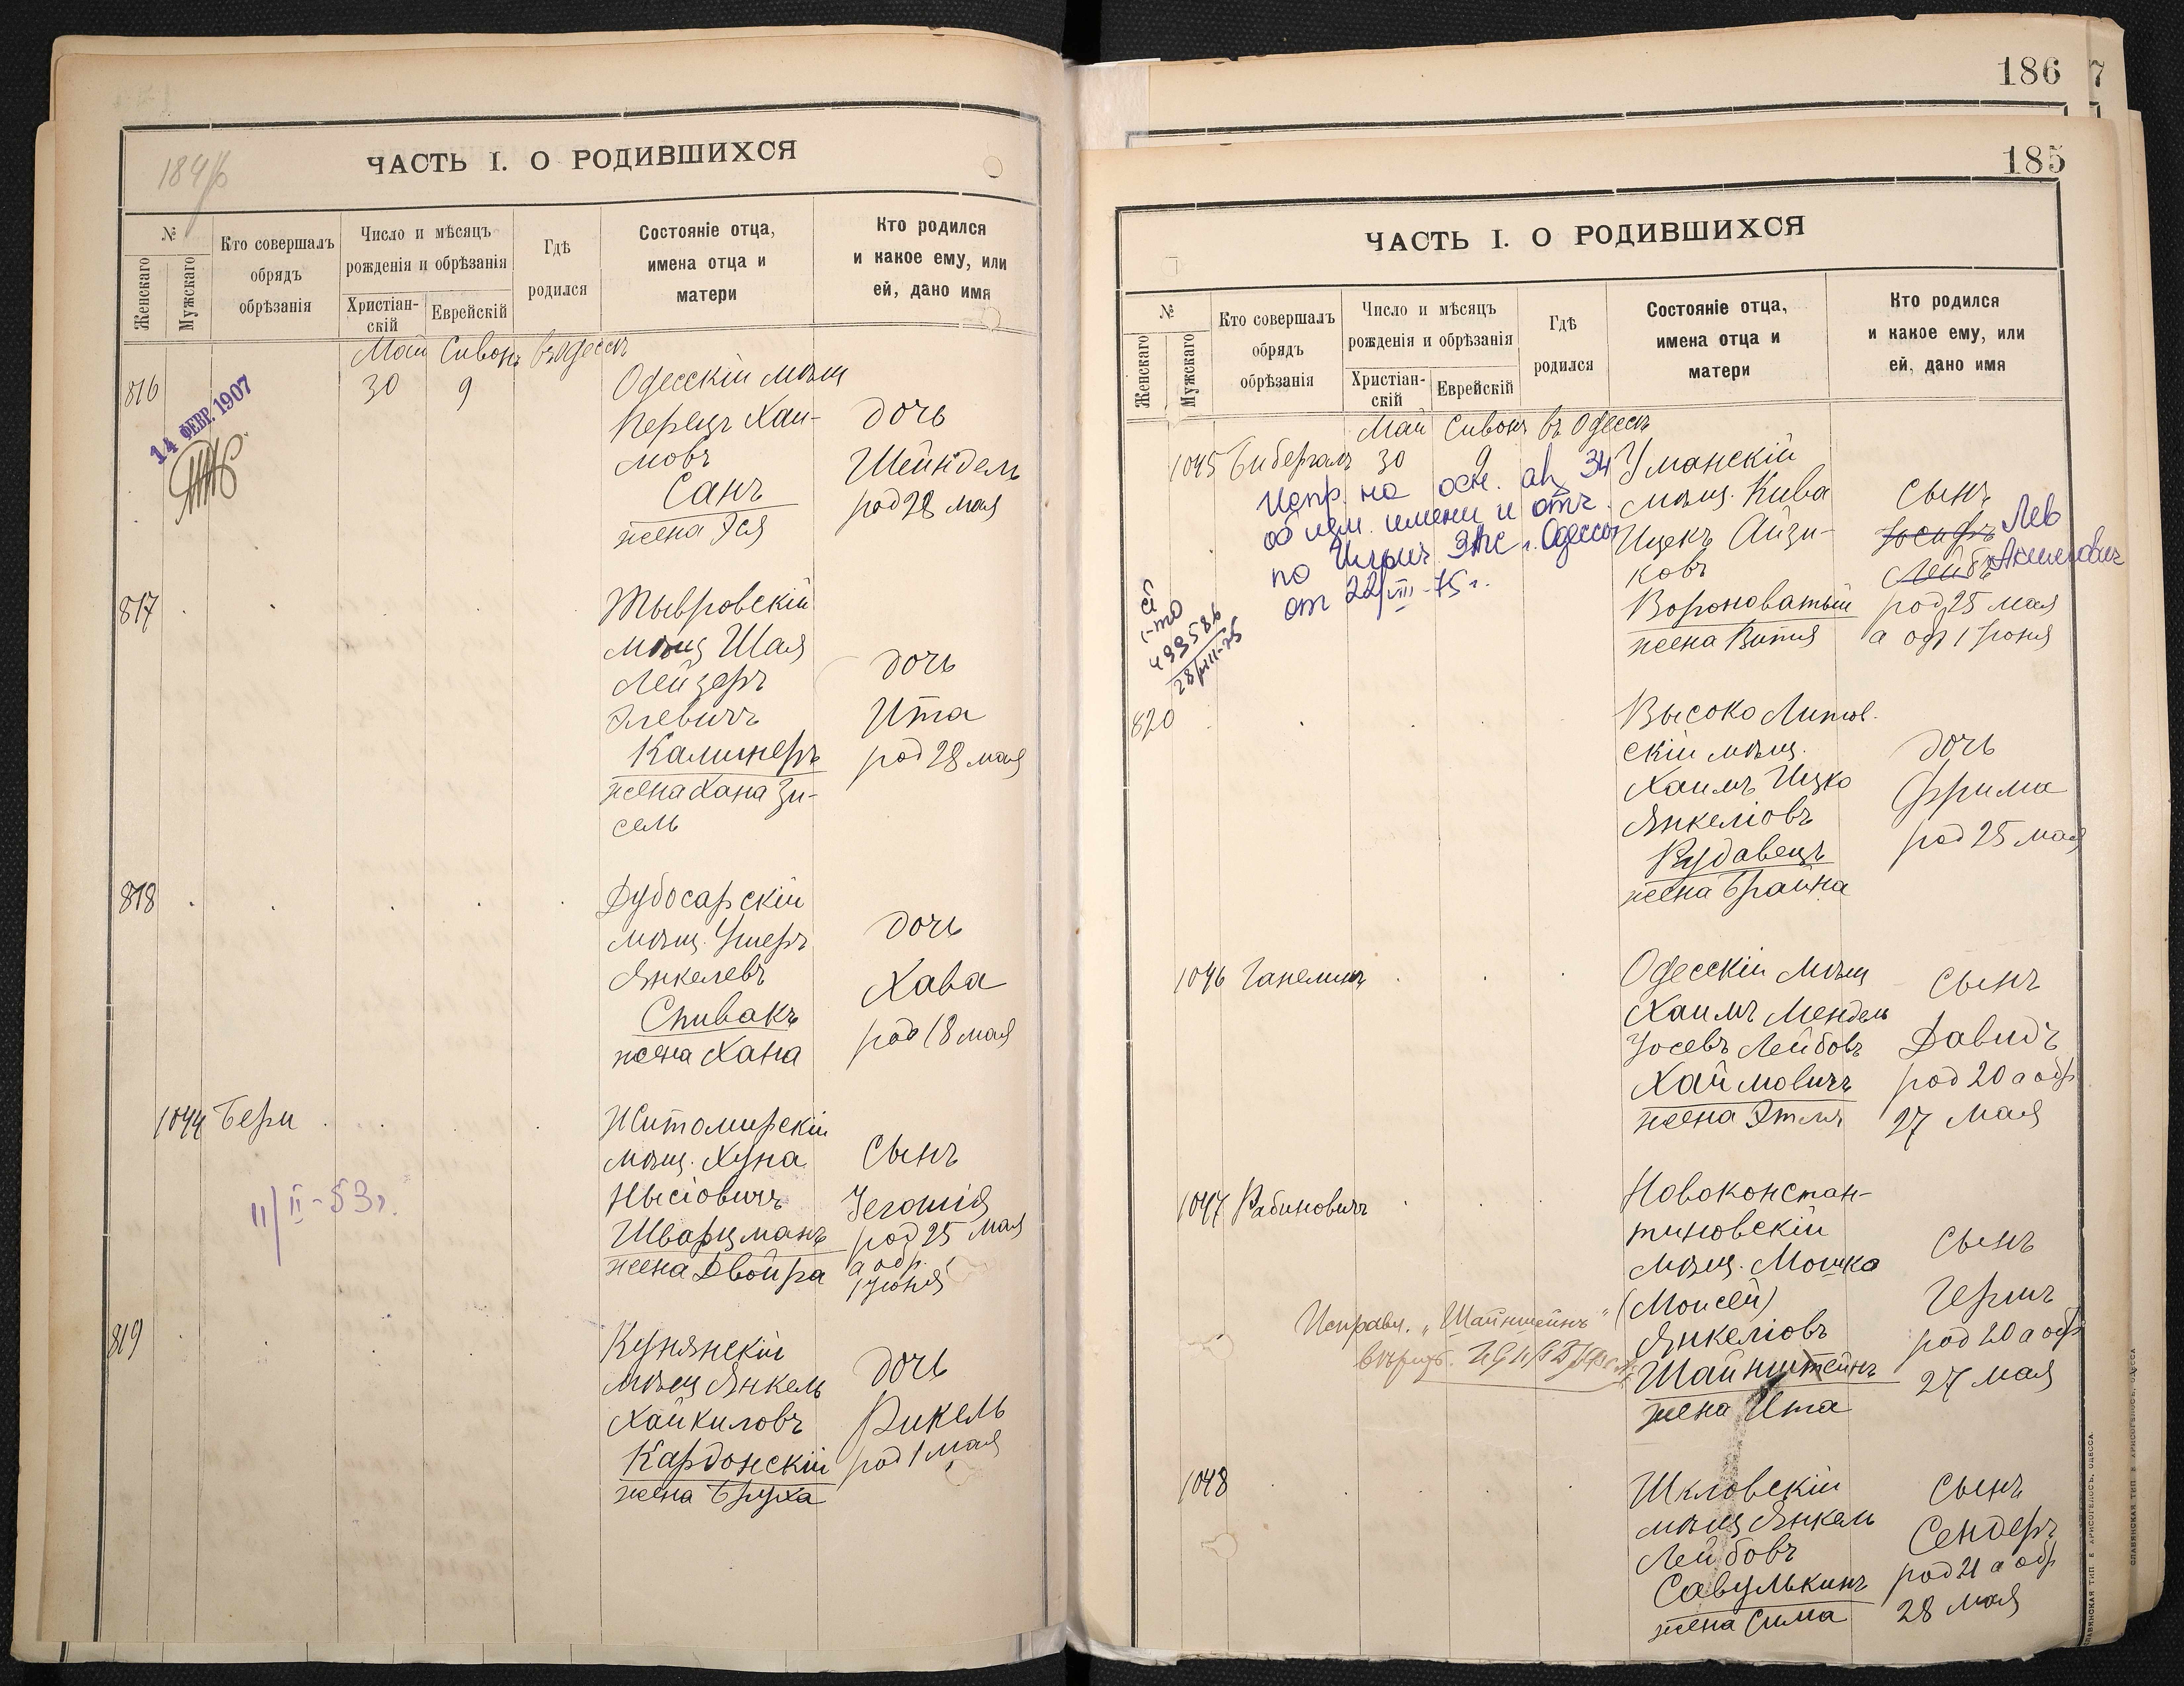 184 об
ЧАСТЬ I. О РОДИВШИХСЯ
№
Женскаго
Мужскаго
Кто совершалъ
обрядъ
обрѣзанія
Число и мѣсяцъ
рожденія и обрѣзанія
Христіан-
скій
Еврейскій
Гдѣ
родился
Состояніе отца,
имена отца и
матери
Кто родился
и какое ему, или
ей, дано имя
Май Сивонъ въ Одессѣ
816 30 9
14 ФЕВР. 1907
Одесскій мѣщ
Перецъ Хаи-
мовъ
Санъ
жена Эся
дочь
Шейндель
род 28 мая
817
Тывровскій
мѣщ Шая
Лейзеръ
Элевичъ
Калинеръ
жена Хана Зи-
сель
дочь
Ита
род 28 мая
818
Дубосарскій
мѣщ. Ушеръ
Янкелевъ
Спивакъ
жена Хана
дочь
Хава
род 18 мая
1044 Бери
11/II-53г.
Житомирскій
мѣщ. Хуна
Нысіовичъ
Шварцманъ
жена Двойра
сынъ
род 25 мая
а обр.
1 Іюня
819
Кунянскій
мѣщ Янкель
Хайкиловъ
Кардонскій
жена Бруха
дочь
Рикель
род 1 мая
186
7
185
ЧАСТЬ I. О РОДИВШИХСЯ
№
Женскаго
Мужскаго
Кто совершалъ
обрядъ
обрѣзанія
Число и мѣсяцъ
рожденія и обрѣзанія
Христіан-
скій
Еврейскій
Гдѣ
родился
Состояніе отца,
имена отца и
матери
Кто родился
и какое ему, или
ей, дано имя
Май Сивонъ въ Одессѣ
1045 Бибергалъ 30 9
Испр. на осн. ак 34
об изм. имени и отч.
по Ильич. ЗАГС г. Одессы
от 22/VIII-75 г.
499586
28/VIII-75
Уманскій
мѣщ. Кива
Ицекъ Айзи-
ковъ
Вороноватый
жена Витя
сынъ
Іосифъ Лев
Лейбъ Акимович
род 25 мая
а обр 1 Іюня
820
Высоко Литов.
скій мѣщ.
Хаимъ Ицко
Янкеліовъ
Рудавецъ
жена Брайна
дочь
Фрима
род 25 мая
1046 Ганелинъ
Одесскій мѣщ
Хаимъ Мендель
Іосевъ Лейбовъ
Хаймовичъ
жена Этля
сынъ
Давидъ
род 20 а обр
27 мая
1047 Рабиновичъ
Исправл. „Шайнштейнъ"
Новоконстан-
тиновскій
мѣщ. Мошка
(Моисей)
Янкеліовъ
Шайнштейнъ
жена Ита
сынъ
Гершъ
род 20 а обр
27 мая
1048
Шкловскій
мѣщ Янкель
Лейбовъ
Савулькинъ
жена Сима
сынъ
Сендеръ
род 21 а обр
28 мая
СЛАВЯНСКАЯ ТИП. Е. ХРИСОГЕЛОСЪ, ОДЕССА.